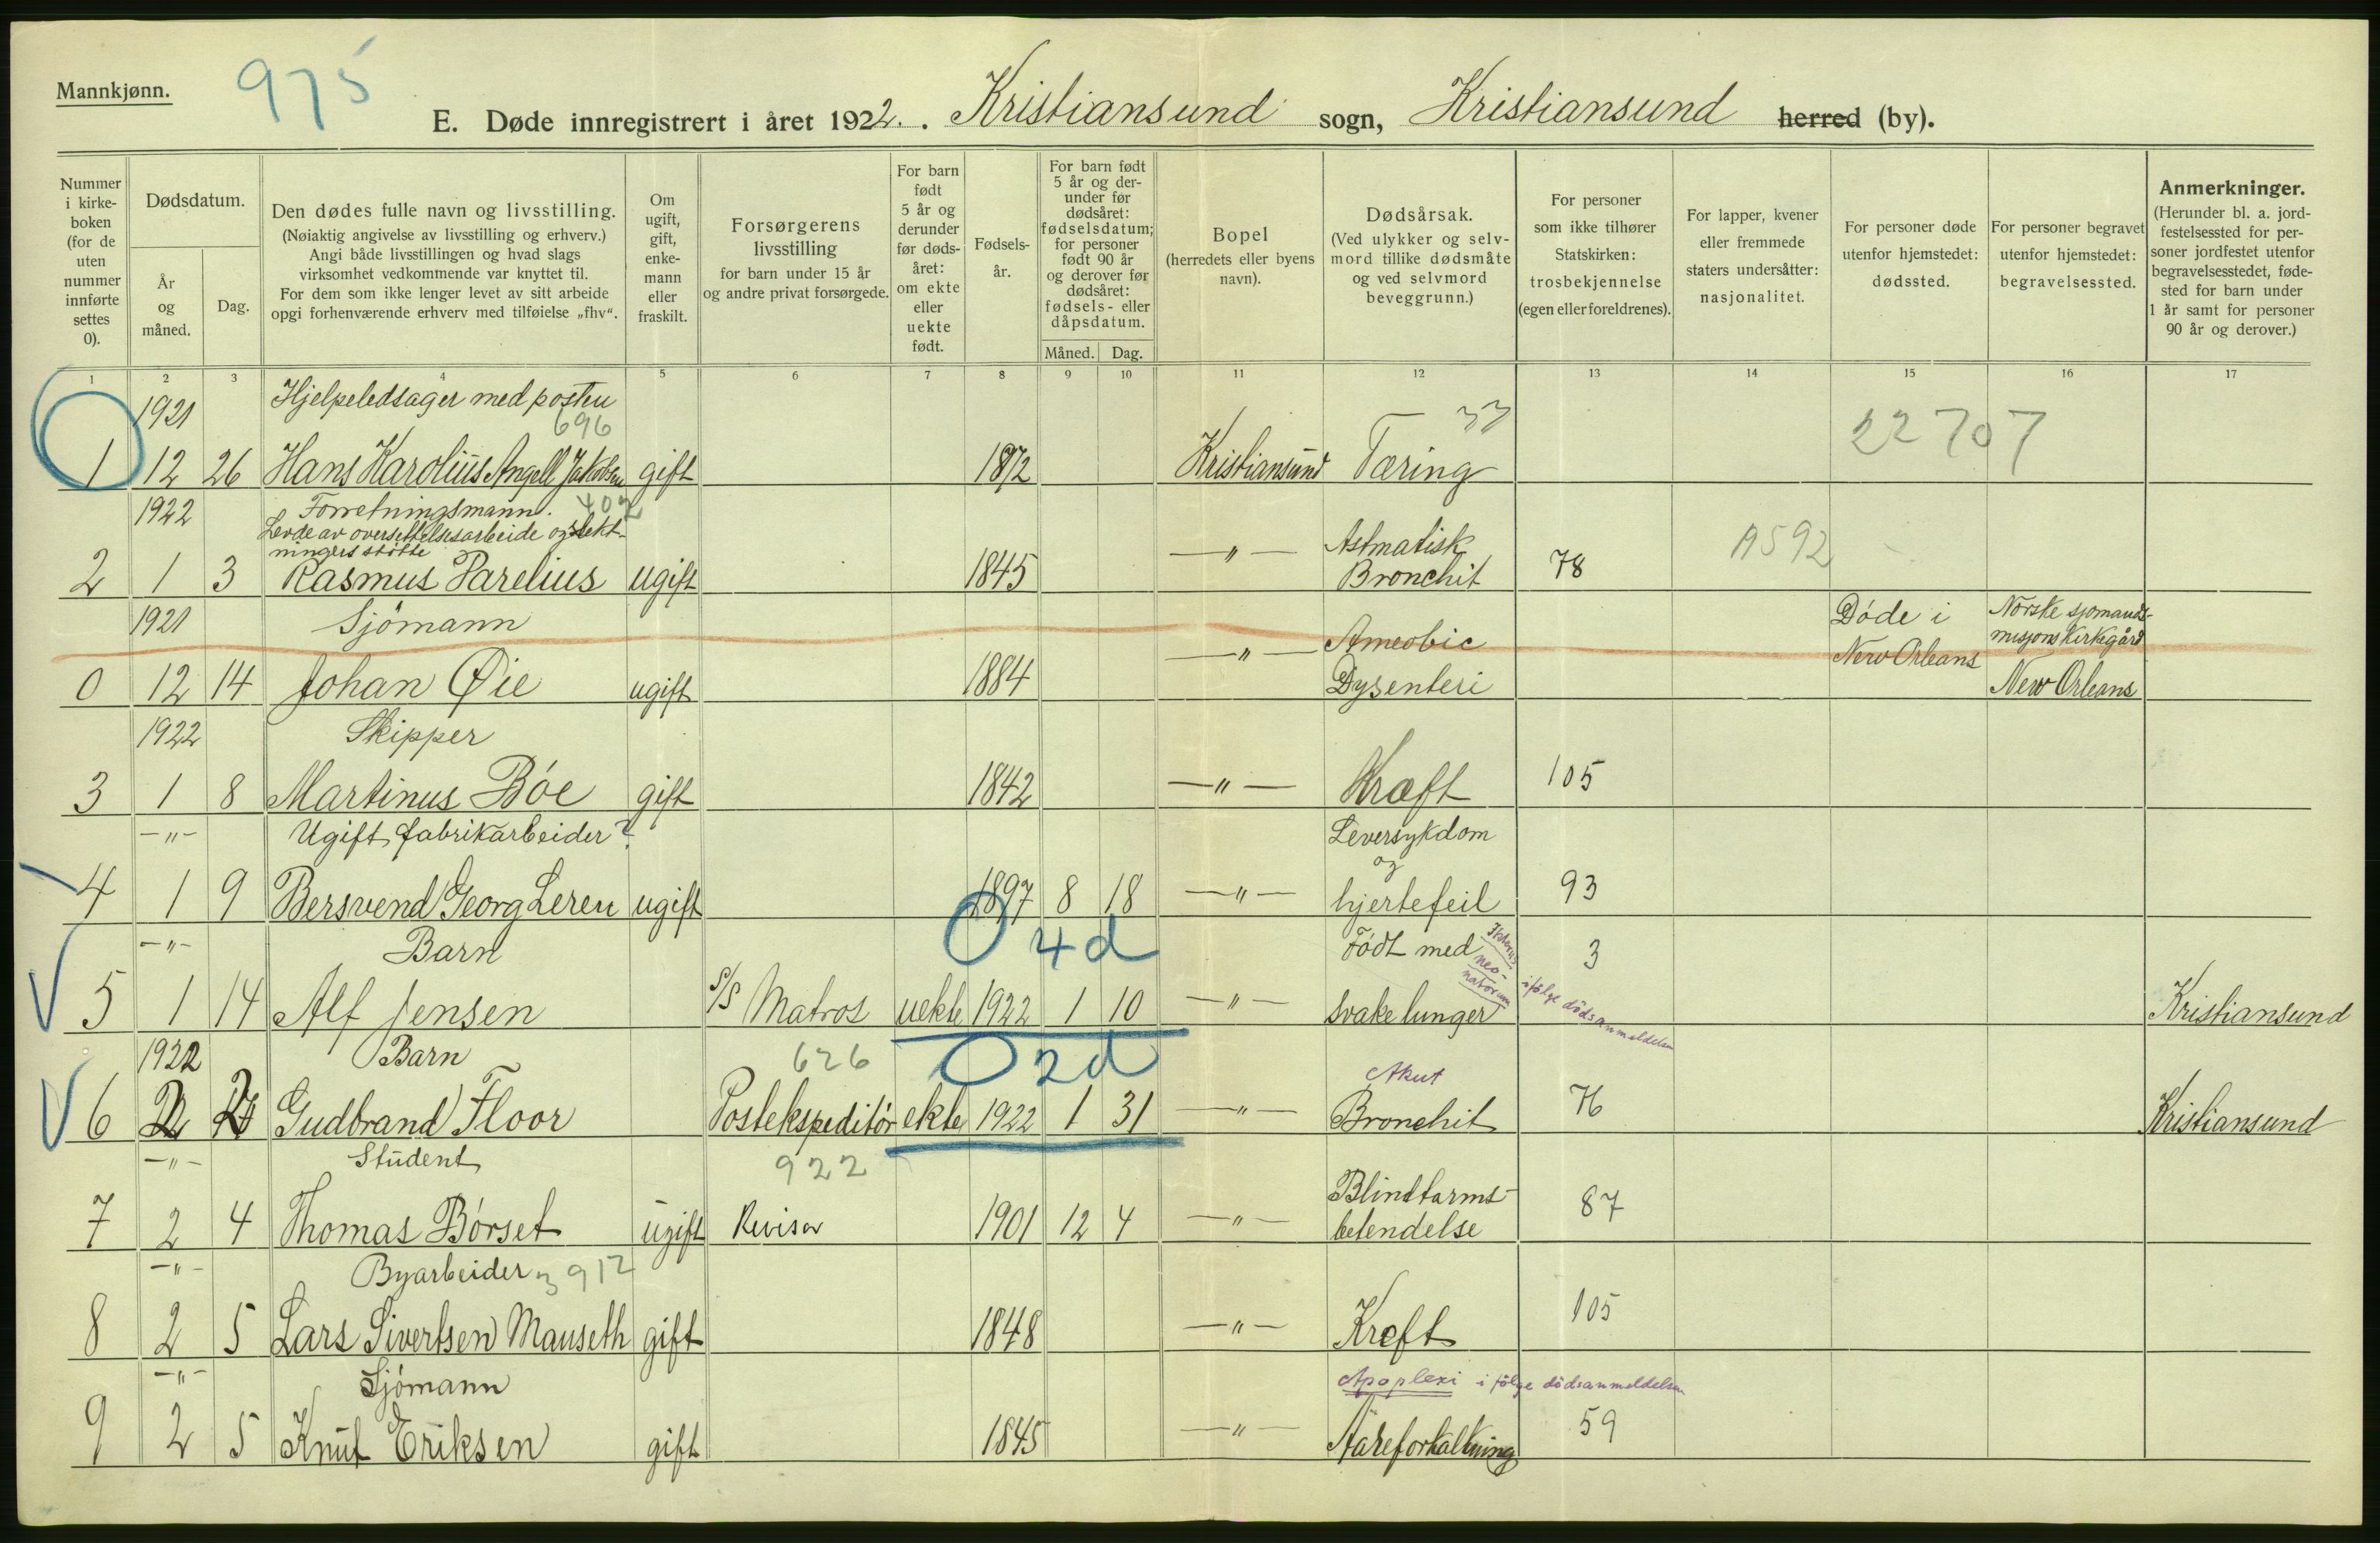 Mannkjønn.
975
E. Døde innregistrert i året 1922. Kristiansund sogn, Kristiansund herred (by).
Nummer i kirkeboken (for de uten nummer innførte settes 0).
Dødsdatum.
År og måned.
Dag.
Den dødes fulle navn og livsstilling.
(Nøiaktig angivelse av livsstilling og erhverv.)
Angi både livsstillingen og hvad slags
virksomhet vedkommende var knyttet til.
For dem som ikke lenger levet av sitt arbeide
opgi forhenværende erhverv med tilføielse „fhv“.
Om ugift, gift, enkemann eller fraskilt.
Forsørgerens livsstilling
for barn under 15 år
og andre privat forsørgede.
For barn født 5 år og derunder før dødsåret: om ekte eller uekte født.
Fødselsår.
For barn født 5 år og derunder før dødsåret: fødselsdatum; for personer født 90 år og derover før dødsåret: fødsels- eller dåpsdatum.
Måned. Dag.
Bopel
(herredets eller byens navn).
Dødsårsak.
(Ved ulykker og selvmord tillike dødsmåte og ved selvmord beveggrunn.)
For personer som ikke tilhører Statskirken: trosbekjennelse (egen eller foreldrenes).
For lapper, kvener eller fremmede staters undersåtter: nasjonalitet.
For personer døde utenfor hjemstedet: dødssted.
For personer begravet utenfor hjemstedet: begravelsessted.
Anmerkninger.
(Herunder bl. a. jordfestelsessted for personer jordfestet utenfor begravelsesstedet, fødested for barn under 1 år samt for personer 90 år og derover.)
1 2 3 4 5 6 7 8 9 10 11 12 13 14 15 16 17
1921 Hjelpeledsager med posten 696 33 22707
1 12 26 Hans Karolius Angell Jakobsen gift 1872 Kristiansund Tæring
1922 Forretningsmann. 402
Levde av oversettelsesarbeide og slektningers støtte
2 1 3 Rasmus Parelius ugift 1845 —"— Astmatisk Bronchit 78 A592
1921 Sjömann
0 12 14 Johan Øie ugift 1884 —"— Ameobic Dysenteri Døde i New Orleans Norske sjomandsmisjons Kirkegård New Orleans
1922 Skipper
3 1 8 Martinus Bóe gift 1842 —"— Kræft 105
—"— Ugift fabrikarbeider?
4 1 9 Bersvend Georg Leren ugift 1897 8 18 —"— Leversykdom og hjertefeil 93
—"— Barn 4d
5 1 14 Alf Jensen S/S Matros uekte 1922 1 10 —"— Født med svake lunger Ikterus neonatorum ifølge dödsanmeldelsen 3 Kristiansund
1922 Barn 626 2d
6 2 2 Gudbrand Floor Postekspeditör ekte 1922 1 31 —"— Akut Bronchit 76 Kristiansund
—"— Student 922
7 2 4 Thomas Börset ugift Revisor 1901 12 4 —"— Blindtarmsbetendelse 87
—"— Byarbeider 3912
8 2 5 Lars Sivertsen Mauseth gift 1848 —"— Kræft 105
—"— Sjómann Apoplexi i følge dödsanmeldelsen
9 2 5 Knut Eriksen gift 1845 —"— Aareforkalkning 59